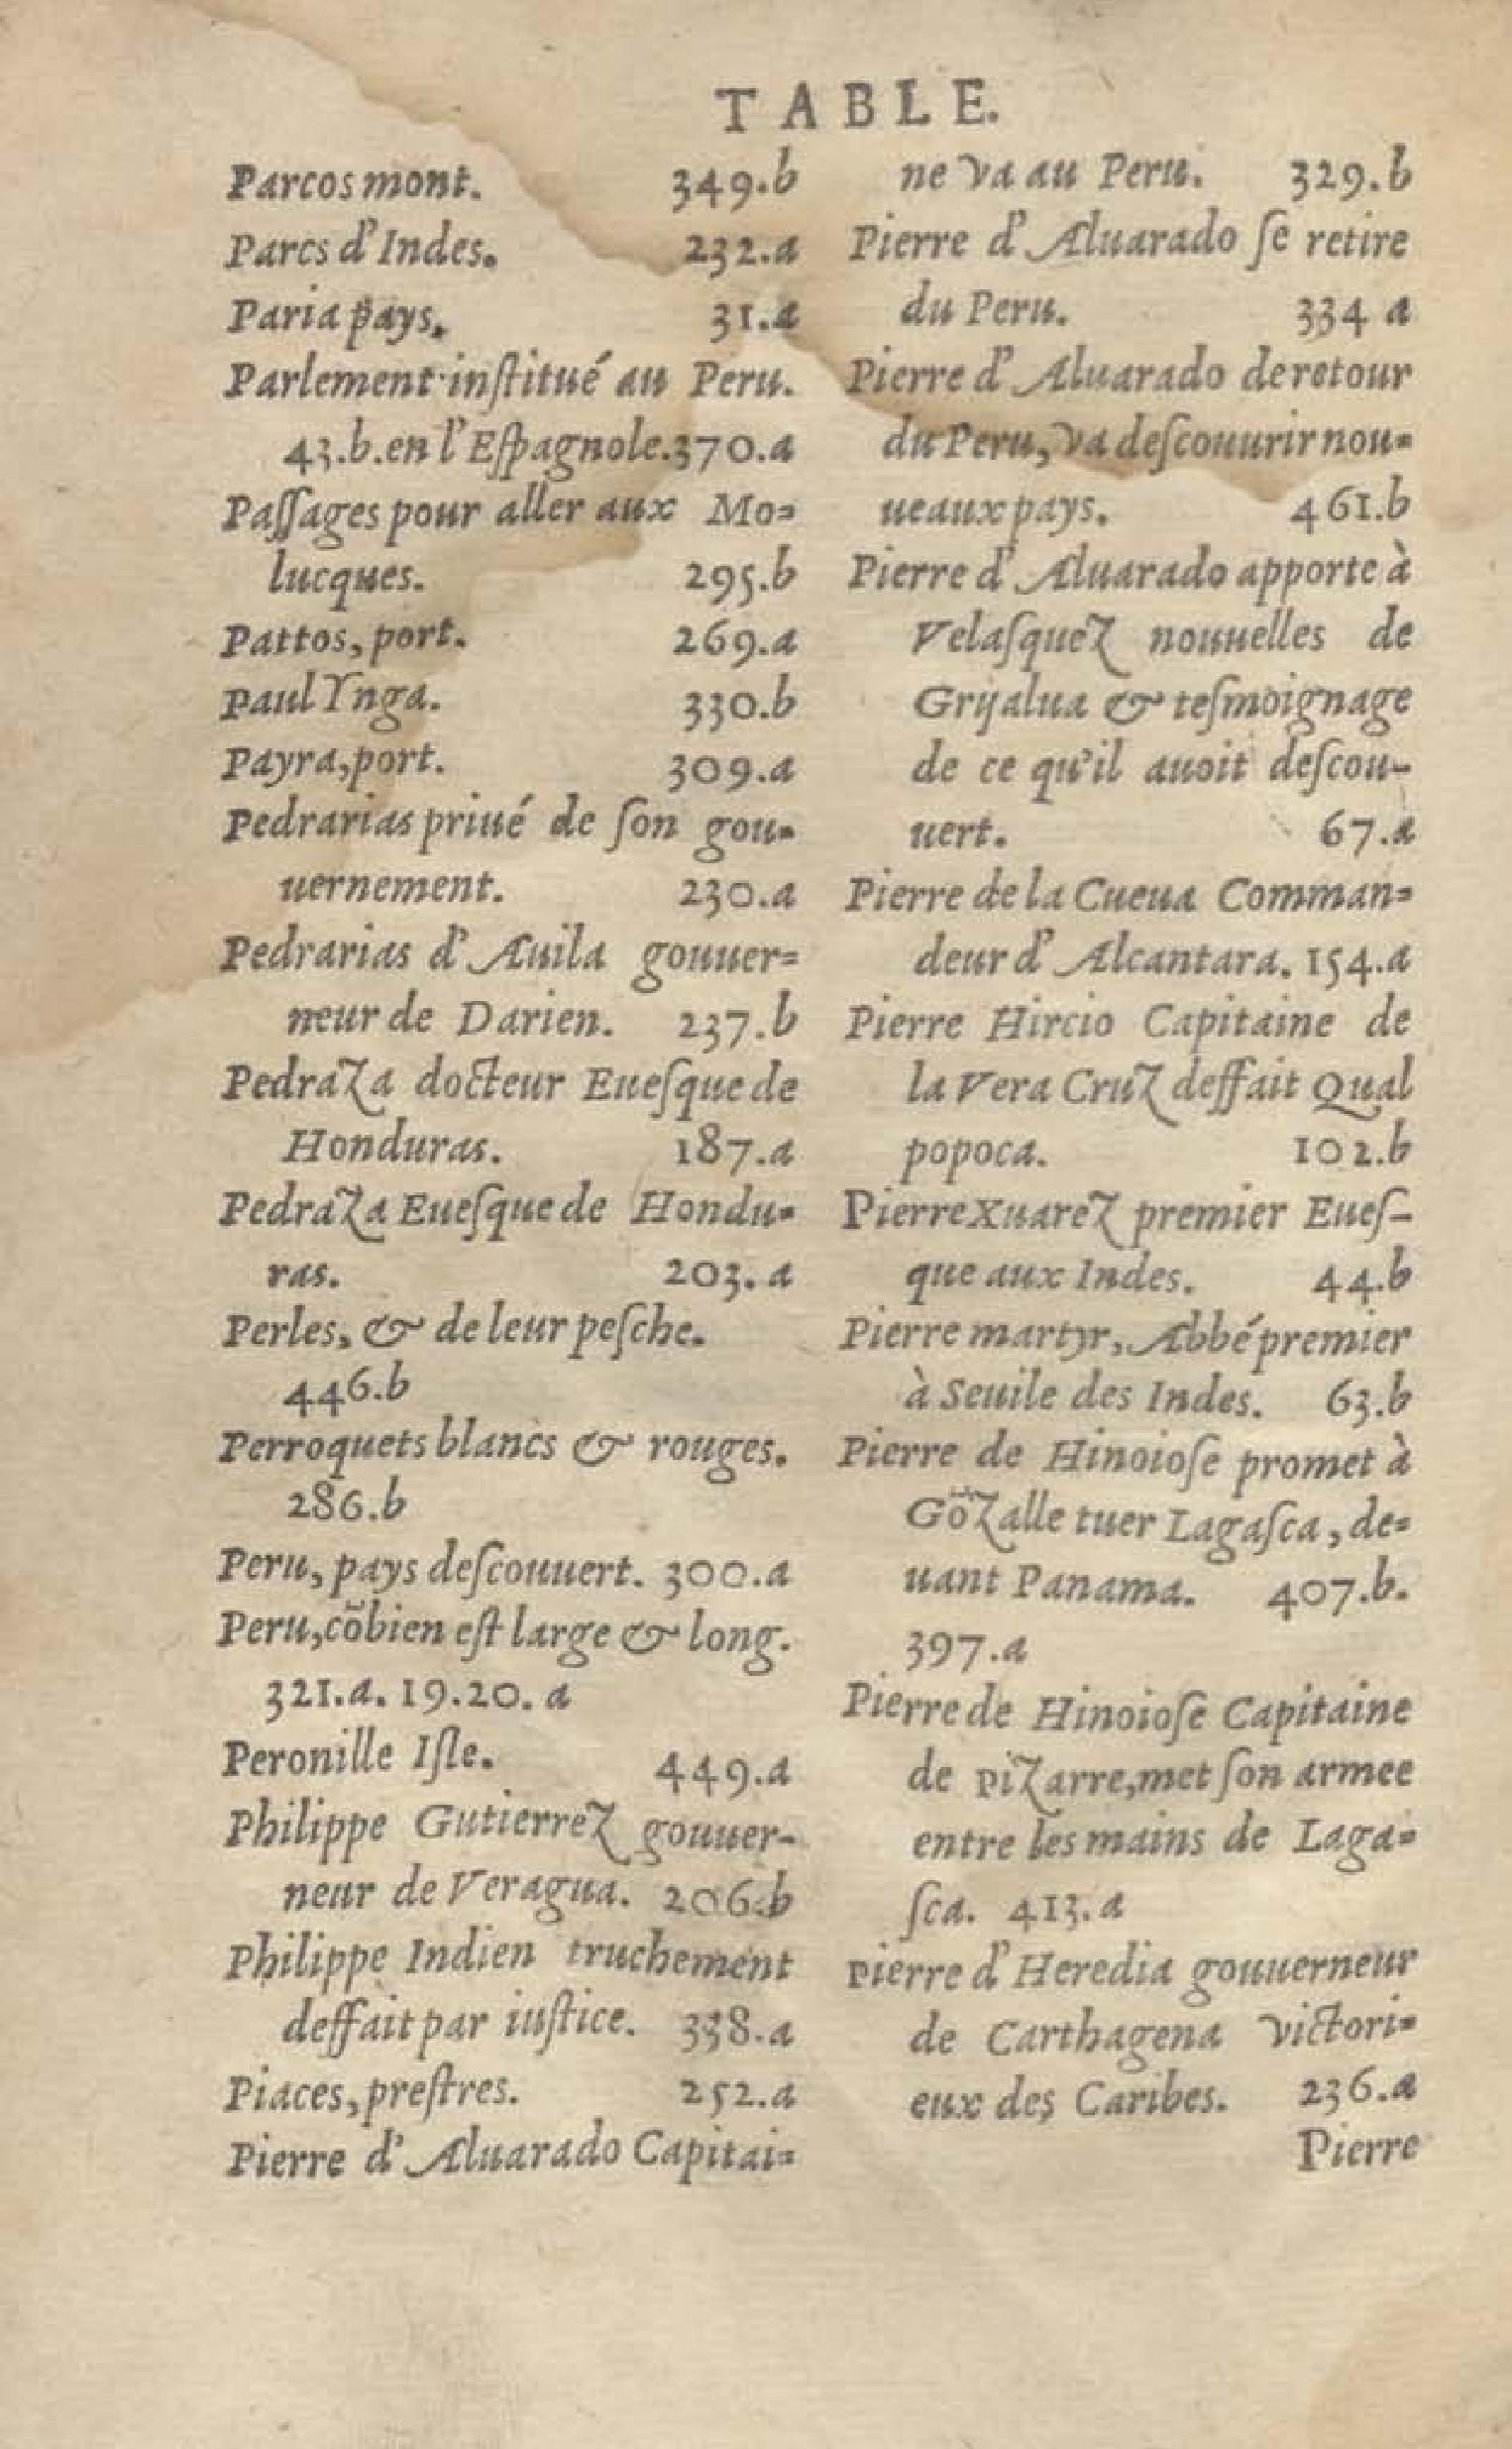 TABLE.
Parcos mont. 349.b
Parcs d'Indes. 232.a
Paria pays. 31.a
Parlement inſtitué au Peru.
43.b. en l'Eſpagnole. 370.a
Paſſages pour aller aux Mo=
lucques. 295.b
Pattos, port. 269.a
Paul Ynga. 330.b
Payra, port. 309.a
Pedrarias priué de ſon gou=
uernement. 230.a
Pedrarias d'Auila gouuer=
neur de Darien. 237.b
Pedraza docteur Eueſque de
Honduras. 187.a
Pedraza Eueſque de Hondu=
ras. 203.a
Perles, & de leur peſche.
446.b
Perroquets blancs & rouges.
286.b
Peru, pays deſcouuert. 300.a
Peru, cõbien eſt large & long.
321.a. 19.20. a
Peronille Iſle. 449.a
Philippe Gutierrez gouuer-
neur de Veragua. 206.b
Philippe Indien truchement
deffait par iuſtice. 338.a
Piaces, preſtres. 252.a
Pierre d'Aluarado Capitai=
ne va au Peru. 329.b
Pierre d'Aluarado ſe retire
du Peru. 334 a
Pierre d'Aluarado de retour
du Peru, va deſcouurir nou=
ueaux pays. 461.b
Pierre d'Aluarado apporte à
Velaſquez nouuelles de
Grijalua & teſmoignage
de ce qu'il auoit deſcou-
uert. 67.a
Pierre de la Cueua Comman=
deur d'Alcantara. 154.a
Pierre Hircio Capitaine de
la Vera Cruz deffait Qual
popoca. 102.b
Pierre Xuarez premier Eueſ-
que aux Indes. 44.b
Pierre martyr, Abbé premier
à Seuile des Indes. 63.b
Pierre de Hinoioſe promet à
Gõzalle tuer Lagaſca, de=
uant Panama. 407.b.
397.a
Pierre de Hinoioſe Capitaine
de Pizarre, met ſon armee
entre les mains de Laga=
ſca. 413.a
Pierre d'Heredia gouuerneur
de Carthagena victori=
eux des Caribes. 236.a
Pierre